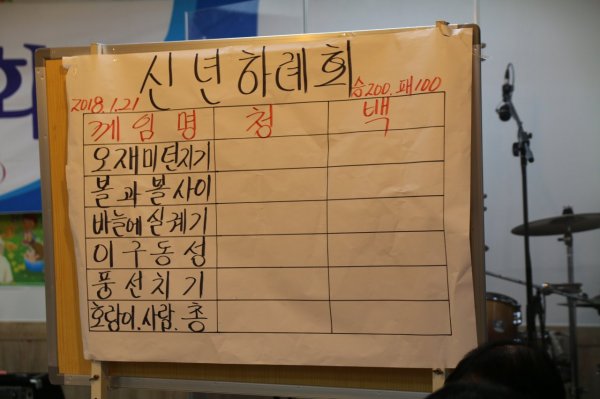 신년하례회
2018.1.21
승200.패100
께임명 청 백
오재미던지기
볼과볼사이
바늘에실꿰기
이구동성
풍선치기
호랑이.사람.총